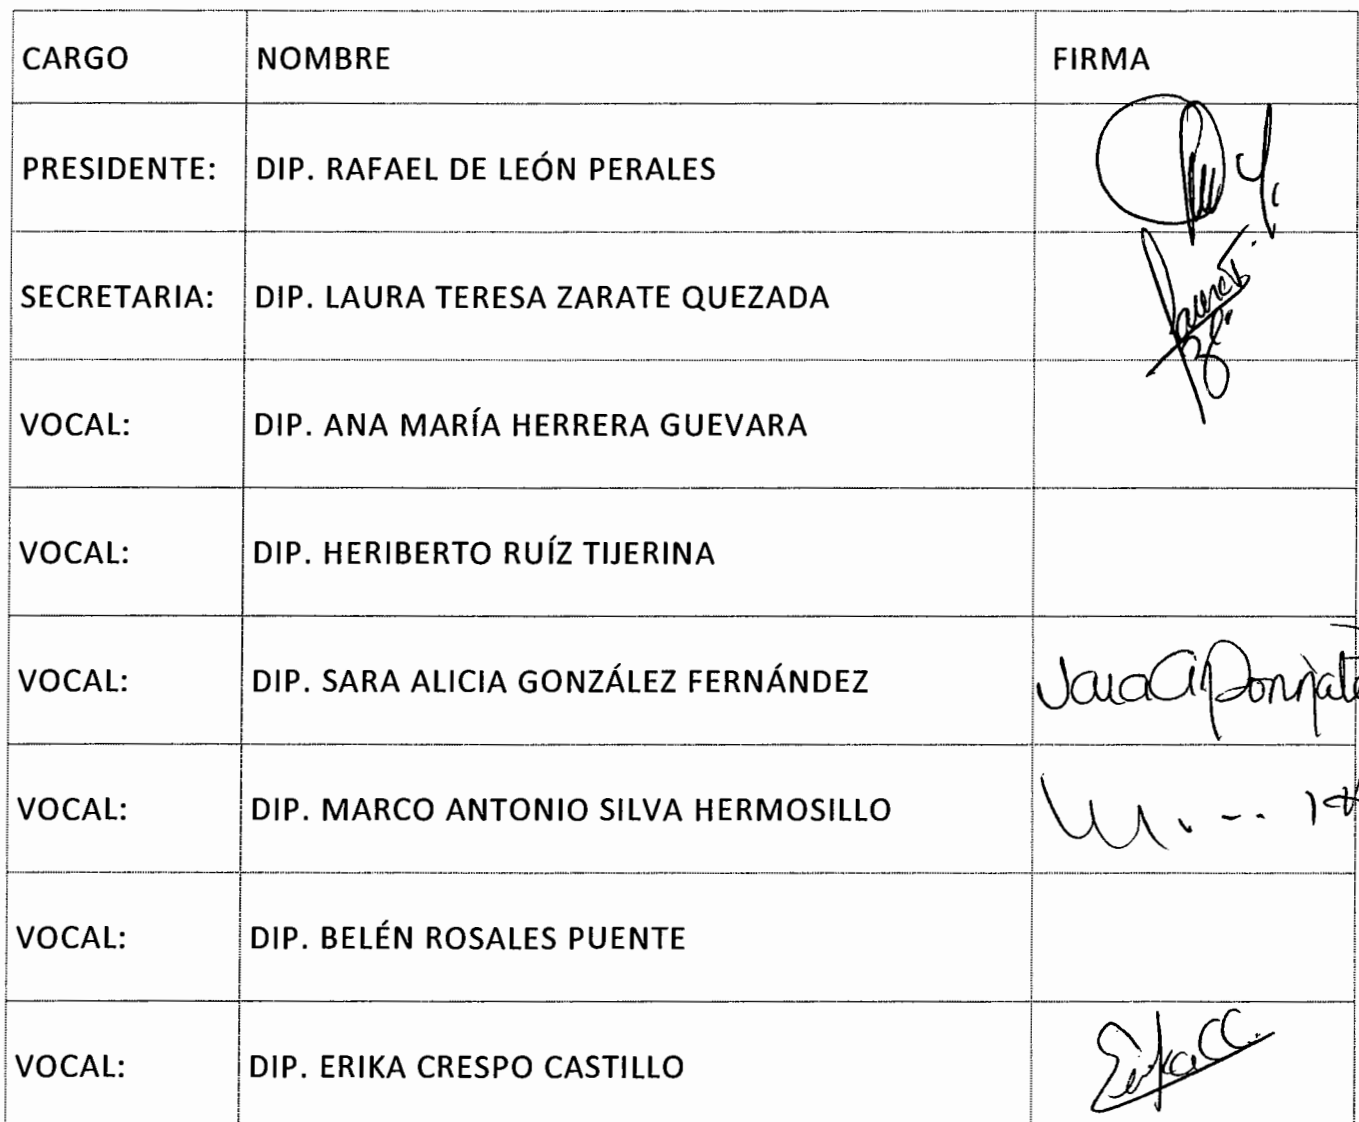 CARGO NOMBRE FIRMA
PRESIDENTE: DIP. RAFAEL DE LEÓN PERALES
SECRETARIA: DIP. LAURA TERESA ZARATE QUEZADA
VOCAL: DIP. ANA MARÍA HERRERA GUEVARA
VOCAL: DIP. HERIBERTO RUÍZ TIJERINA
VOCAL: DIP. SARA ALICIA GONZÁLEZ FERNÁNDEZ
VOCAL: DIP. MARCO ANTONIO SILVA HERMOSILLO
VOCAL: DIP. BELÉN ROSALES PUENTE
VOCAL: DIP. ERIKA CRESPO CASTILLO